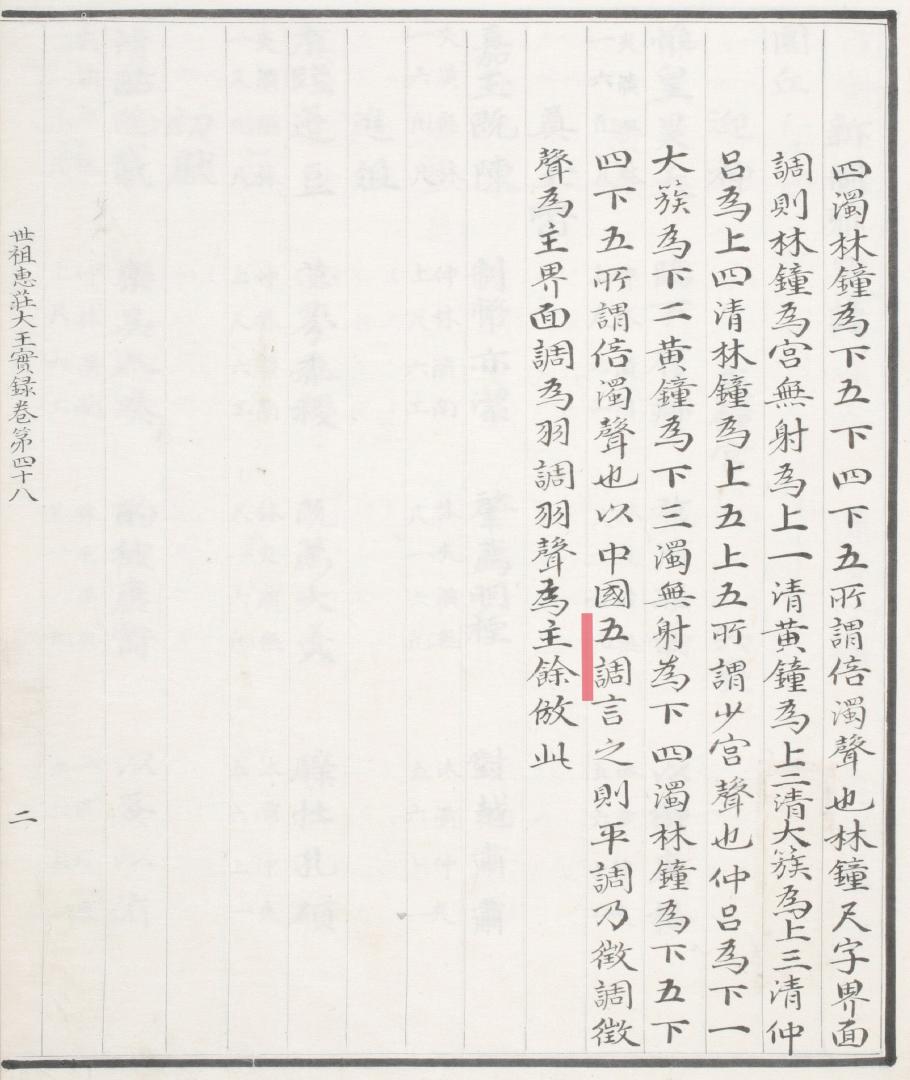 四濁林鐘為下五下四下五所謂倍濁聲也林鐘尺字界面
調則林鐘為宮無射為上一清黃鐘為上二清大簇為上三清仲
呂為上四清林鐘為上五上五所謂少宮聲也仲呂為下一
大簇為下二黃鐘為下三濁無射為下四濁林鐘為下五下
四下五所謂倍濁聲也以中國五調言之則平調乃徵調徵
聲為主界面調為羽調羽聲為主餘倣此
世祖惠莊大王實錄卷第四十八
二